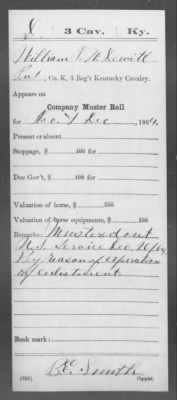 D | 3 Cav. | Ky.
William
Co. K, 3 Reg't Kentucky Cavalry.
Appears on
Company Muster Roll
for Nov & Dec, 1864.
Present or absent
Stoppage, $ 100 for
Due Gov't, $ 100 for
Valuation of horse, $ 100
Valuation of horse equipments, $ 100
Remarks: Mustered out
U.S. Service Dec
By reason of expiration
of enlistment
Book mark:
(358)
Smith
Copyist.